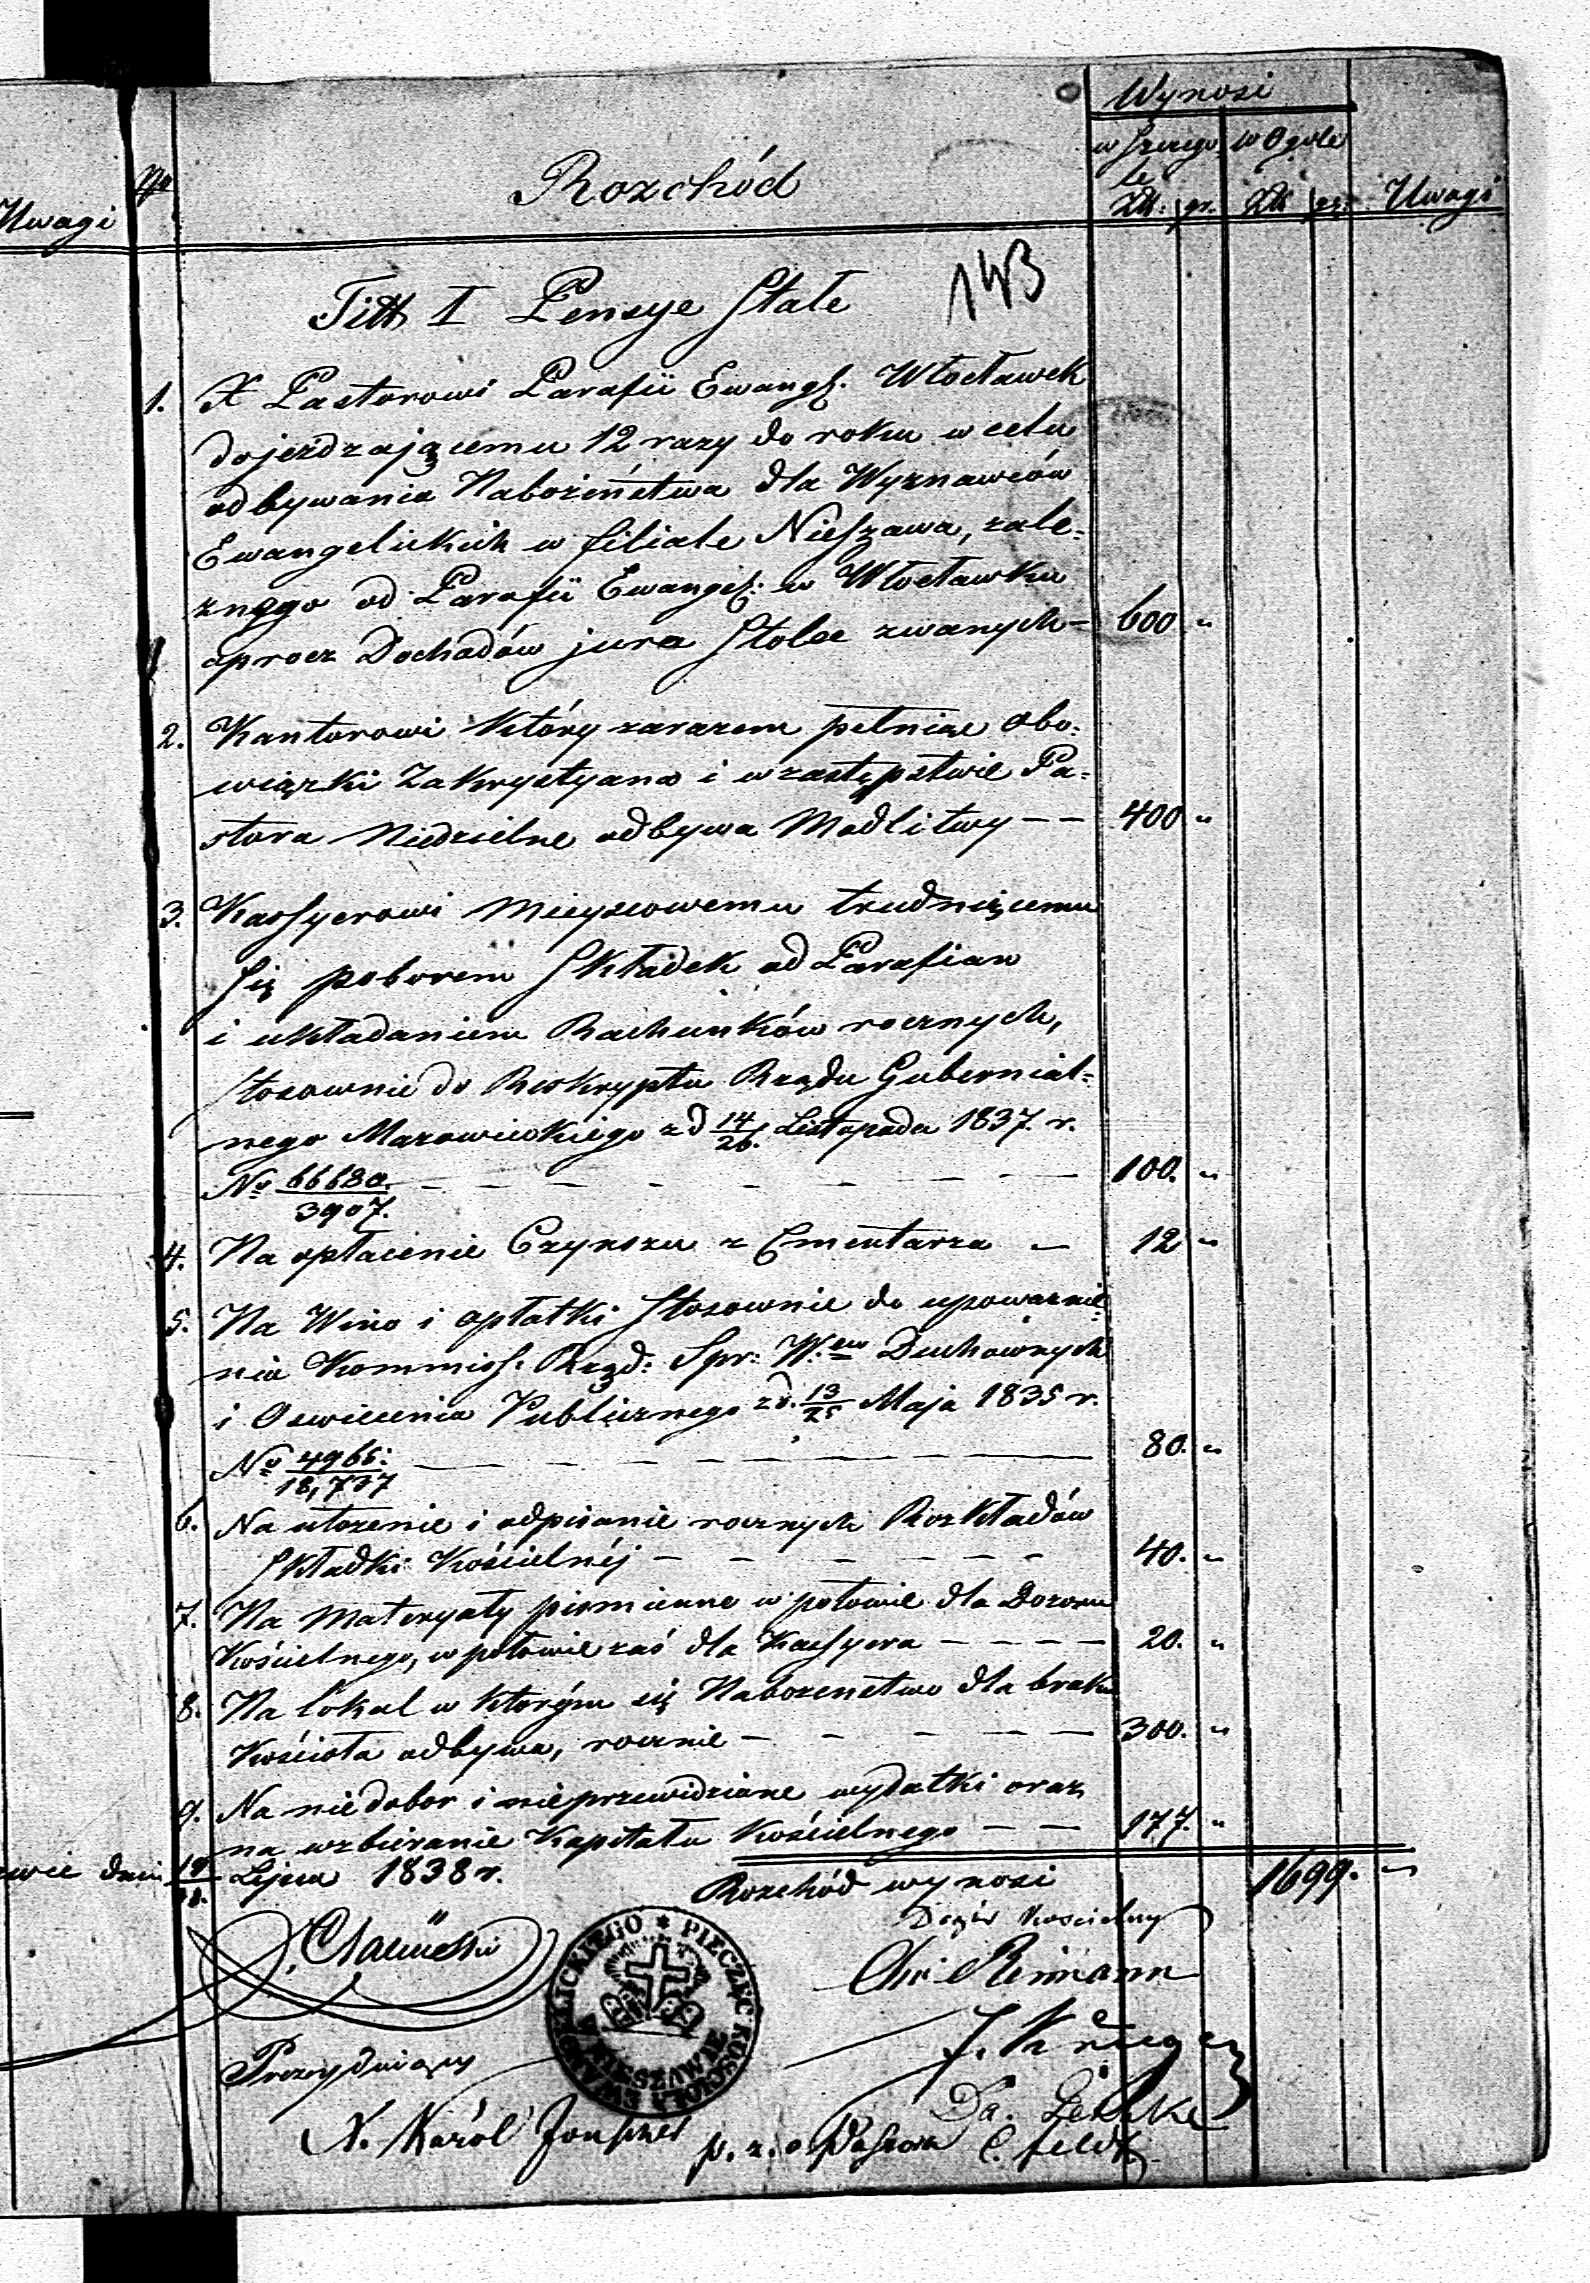 Wynosi
Uwagi
No
Rozchód
w szczególe
w Ogóle
Złt. gr. Złt gr.
Uwagi
143
Titt I Pensye Stałe
1. X Pastorowi Parafii Ewangel. Włocławek
dojeżdzającemu 12 razy do roku w celu
odbywania Nabożeństwa dla Wyznawców
Ewangelickich w filiale Nieszawa, zale-
znego od Parafii Ewangel. w Włocławku
oprocz Dochodów jura Stolee zwanych - 600 "
2. Kantorowi który zarazem pełniąc obo-
wiązki Zakrystyana i w zastępstwie Pa-
stora Niedzielne odbywa Modlitwy - - 400 "
3. Kassyerowi Mieyscowemu trudniącemu
się poborem Składek od Parafian
i układaniem Rachunków rocznych,
stosownie do Reskryptu Rządu Gubernial-
nego Mazowieckiego z d 14/26. Listopada 1837. r.
No 66680./3907. - - - - - - 100. "
4. Na opłacenie Czynszu z Cmentarza - 12 "
5. Na Wino i opłatki stosownie do upoważnie-
nia Kommiss. Rząd: Spr: W:ew Duchownych
i Oswiecenia Publicznego z d. 13/25 Maja 1835 r.
No 4966:/18,737 - - - - - - 80. "
6. Na ułozenie i odpisanie rocznych Rozkładów
Składki Kościelnéj - - - - - - 40. "
7. Na Materyały piśmienne w połowie dla Dozoru
Kościelnego, w połowie zaś dla Kassyera - - - - 20. "
8. Na lokal w którym się Nabozenstwo dla braku
Kościoła odbywa, rocznie - - - - - 300. "
9. Na niedobor i nieprzewidziane wydatki oraz
na wzbieranie Kapitału Kościelnego - - 177. "
Lipca 1838 r.
Rozchód wynosi 1699. "
Dozór Koscielny
Chr: Reimann
J. Krüger
Prezyduiący
X. Karól
PIECZĘĆ KOSCIOŁA EWANGELICKIEGO W NIESZAWIE